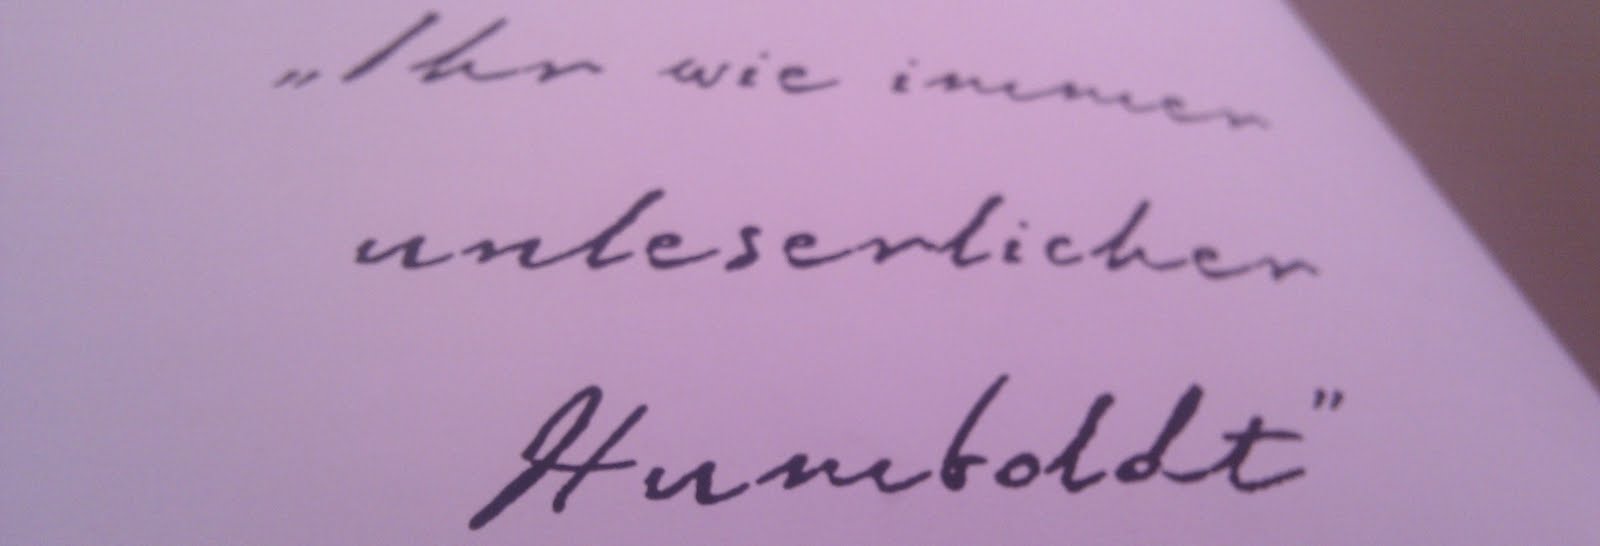 „Ihr wie immer
unleserlicher
Humboldt”